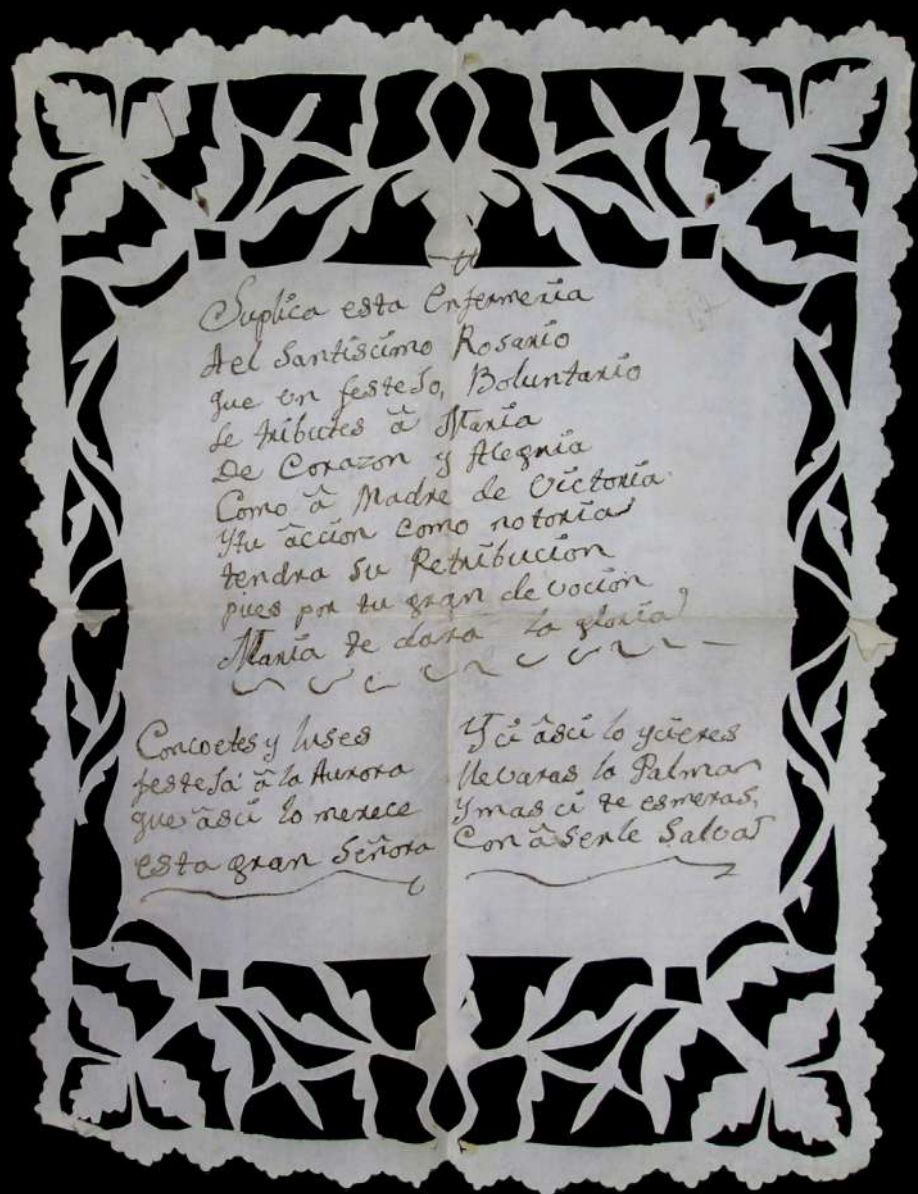 Suplica esta Enfermeria
del Santiscimo Rosario
que en festeJo, Boluntario
le tributes â Maria
De Corazon y Alegria
Como â Madre de Victoria
Ytu âccion como notoria
tendra su Retribucion
pues por tu gran devocion
Maria te dara la gloria
Concoetes y luses
festeJa â la Aurora
que âsci lo merece
esta gran Señora
Y ci âsci lo ycieres
llevaras la Palma
Y mas ci te esmeras,
Con âserle Salva